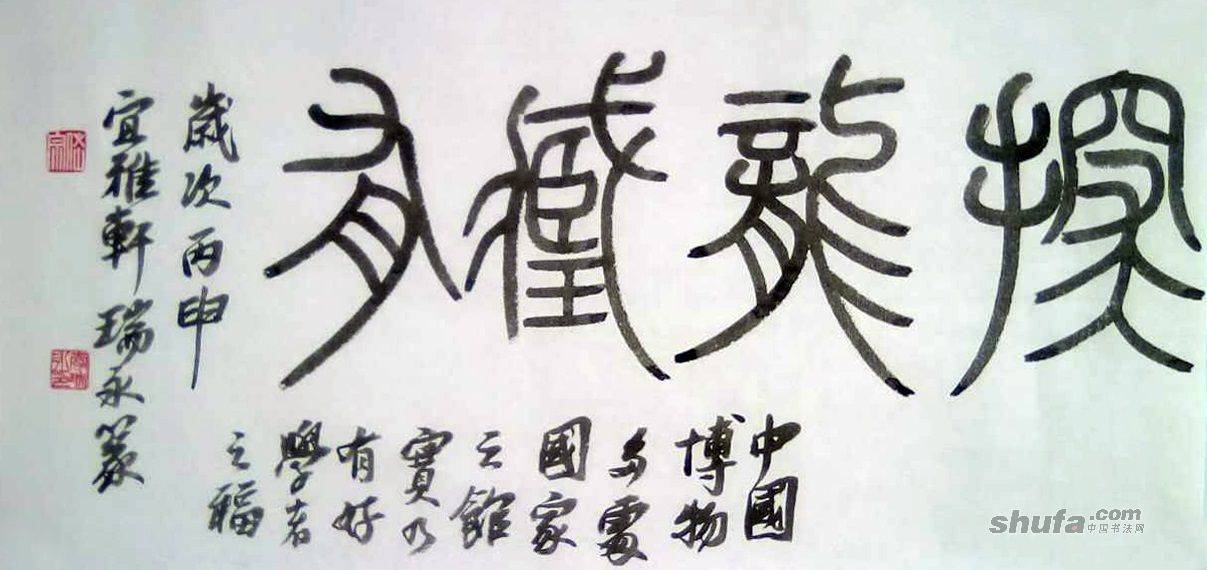 探龍藏有
中國
博物
多處
國家
之館
寶乃
有好
學者
之福
歲次丙申
宜雅軒瑞永篆
shufa.com
中国书法网